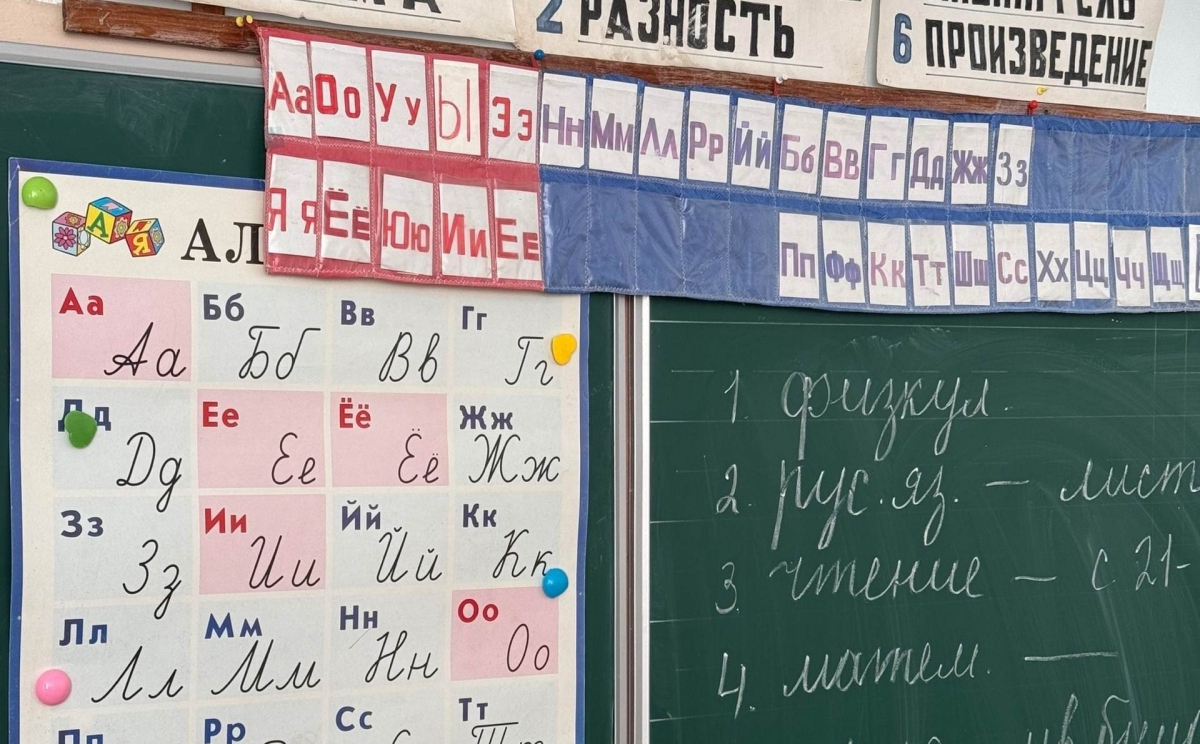 2 РАЗНОСТЬ
6 ПРОИЗВЕДЕНИЕ
Аа Оо Уу Ы Ээ Нн Мм Лл Рр Йй Бб Вв Гг Дд Жж Зз
Я я Ёё Юю Ии Ее Пп Фф Кк Тт Шш Сс Хх Цц Чч Щщ
А Я
АЛ
Аа Бб Вв Гг
Аа Бб Вв Гг
Дд Ее Ёё Жж
Дд Ее Ёё Жж
Зз Ии Йй Кк
Зз Ии Йй Кк
Лл Мм Нн Оо
Лл Мм Нн Оо
Пп Рр Сс Тт
1. физкул.
2. рус. яз. — лист
3. чтение — с 21-
4. матем. —